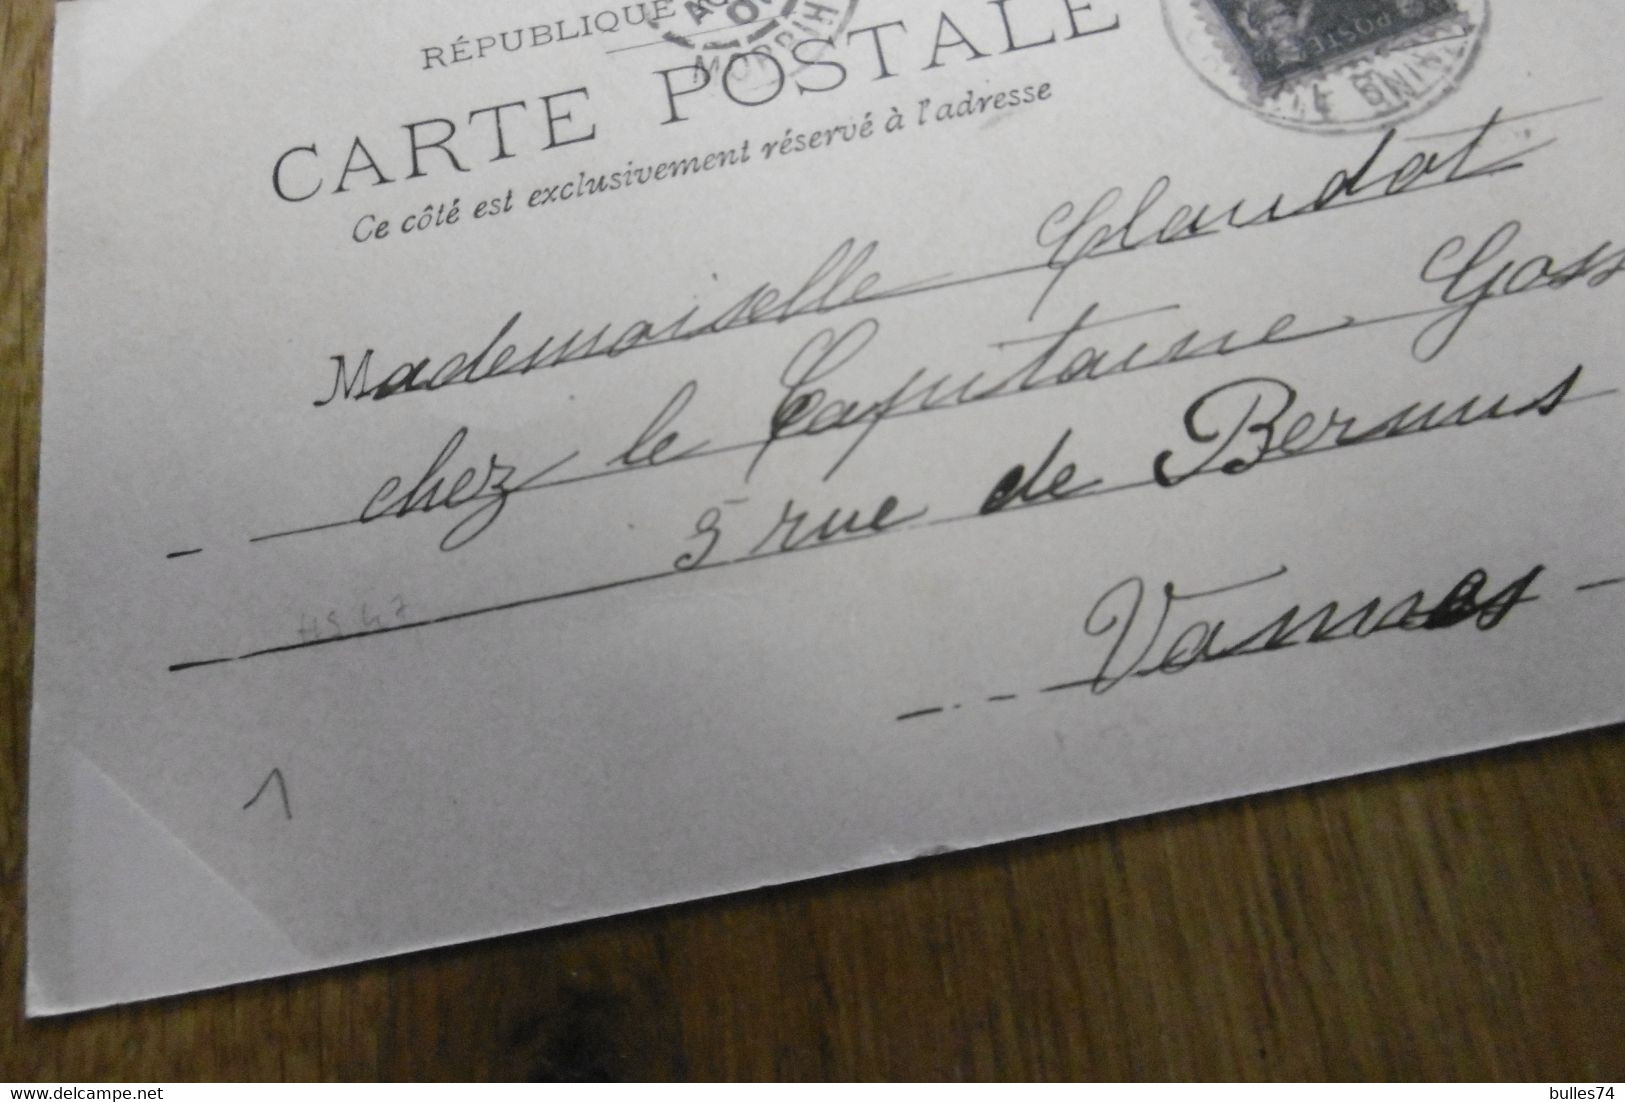 RÉPUBLIQUE
CARTE POSTALE
Ce côté est exclusivement réservé à l'adresse
POSTE
Mademoiselle Claudot
chez le Capitaine Goss
5 rue de Bernus
Vannes
1
www.delcampe.net
bulles74